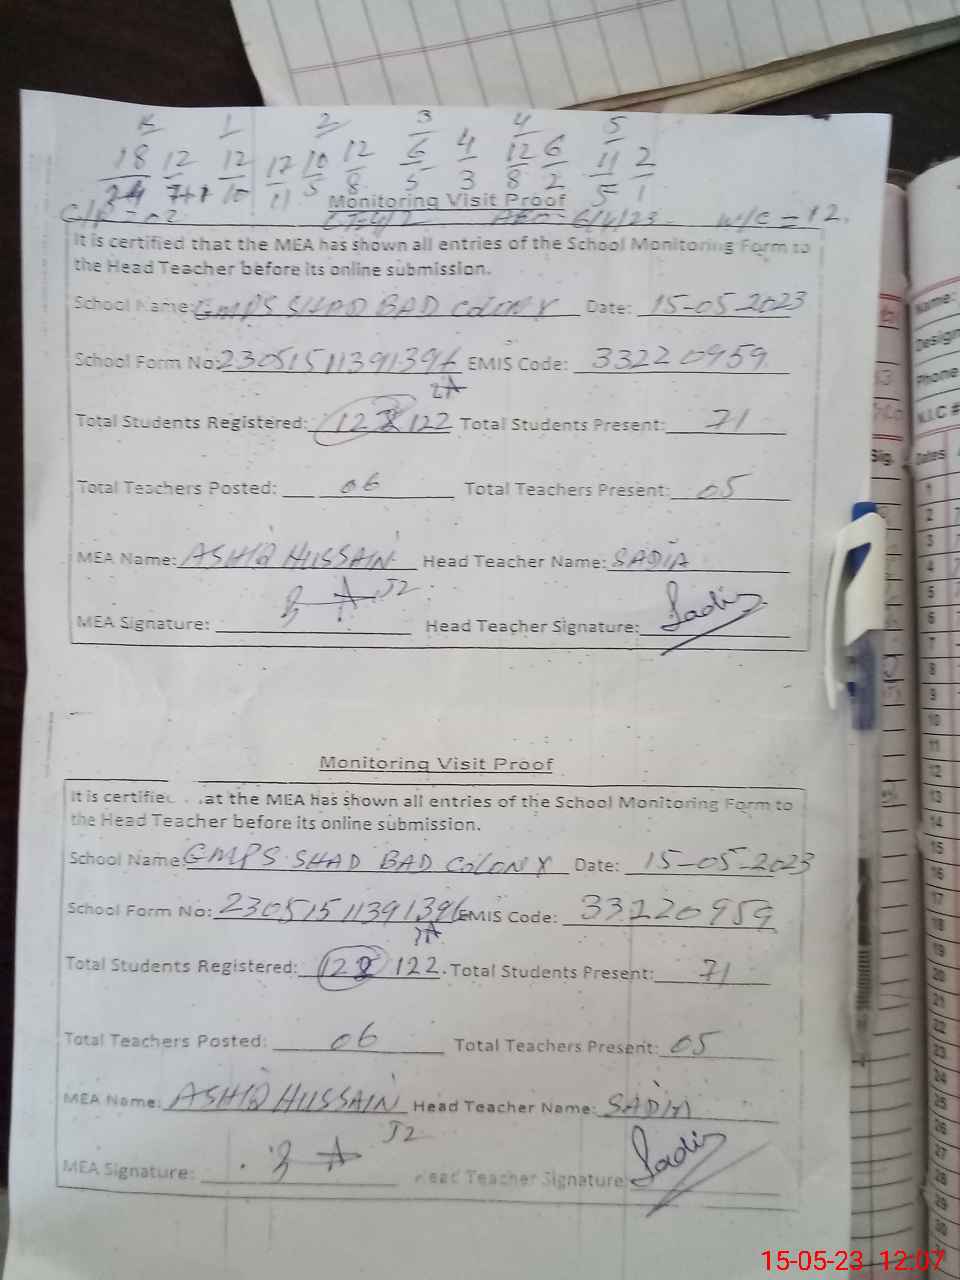 K 1 2 3 4 5
18 12 12 17 10 12 6 4 12 6 11 2
24 7+1 10 11 5 8 5 3 8 2 5 1
Monitoring Visit Proof
6/4/23 W/C = 12.
It is certified that the MEA has shown all entries of the School Monitoring Form to
the Head Teacher before its online submission.
School Name: GMPS SHAD BAD COLONY Date: 15-05-2023
School Form No: 2305151139139 EMIS Code: 33220959
Total Students Registered: 122 Total Students Present: 71
Total Teachers Posted: 06 Total Teachers Present: 05
MEA Name: ASHIQ HUSSAIN Head Teacher Name: SADIA
MEA Signature: Head Teacher Signature: Sadia
Monitoring Visit Proof
It is certified at the MEA has shown all entries of the School Monitoring Form to
the Head Teacher before its online submission.
School Name: GMPS SHAD BAD COLONY Date: 15-05-2023
School Form No: 2305151139139 EMIS Code: 33220959
Total Students Registered: 122. Total Students Present: 71
Total Teachers Posted: 06 Total Teachers Present: 05
MEA Name: ASHIQ HUSSAIN Head Teacher Name: SADIA
MEA Signature: Head Teacher Signature: Sadia
Name:
Design
Phone
N.I.C #
Sig. Dates
1
2
3
4
5
6
7
8
9
10
11
12
13
14
15
16
17
18
19
20
21
22
23
24
25
26
27
28
29
30
15-05-23 12:07